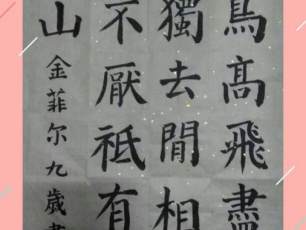 鳥高飛盡
獨去閒相
不厭祗有
山
金菲尔九歲書